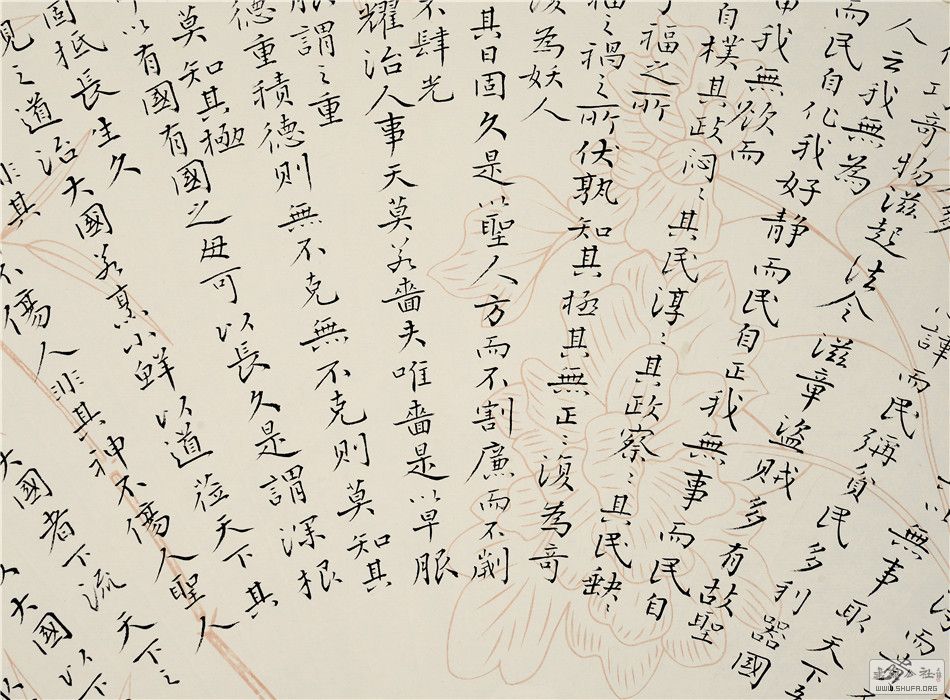 以無事取天下
諱而民彌貧民多利器國
人多
工奇物滋起法令滋章盜賊多有故聖
人云我無為
而民自化我好靜而民自正我無事而民自
我無欲而
自樸其政悶〻其民淳〻其政察〻其民缺〻
福之所
福之禍之所伏孰知其極其無正〻復為奇
復為妖人
其日固久是以聖人方而不割廉而不劌
不肆光
耀治人事天莫若嗇夫唯嗇是以早服
服謂之重
德重積德則無不克無不克則莫知其
莫知其極
可以有國有國之母可以長久是謂深根
固柢長生久
視之道治大國若烹小鮮以道莅天下其
非其
不傷人非其神不傷人聖人
大國者下流天下之
大國以下
WWW.SHUFA.ORG